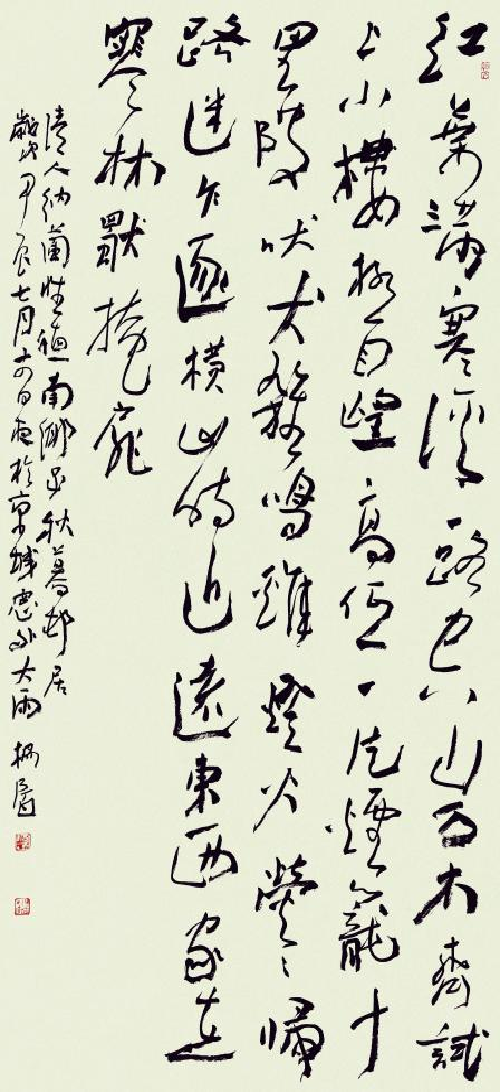 紅葉滿寒溪一路空山万木齊試
上小樓極目望高低一片煙籠十
里陂吠犬雜鳴雞燈火熒々歸
路迷乍逐橫山時近遠東西家在
寒林獨掩扉
清人納蘭性德南鄉子秋暮邨居
歲次甲辰七月十四日夜於京城窗外大雨